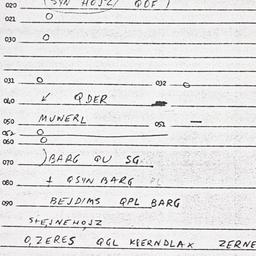 020 (SYN HOJZ/ QOF)
021 O
030 O
031 O 032 O
040 ↙ QDER
050 MUNERL 051 —
052 O
060 O
070 )BARG QU SG
080 QSYN BARG
090 BEJDIMS QPL BARG
STEJNEHOJZ
O,ZERES QGL KFERNDLAX ZERNE